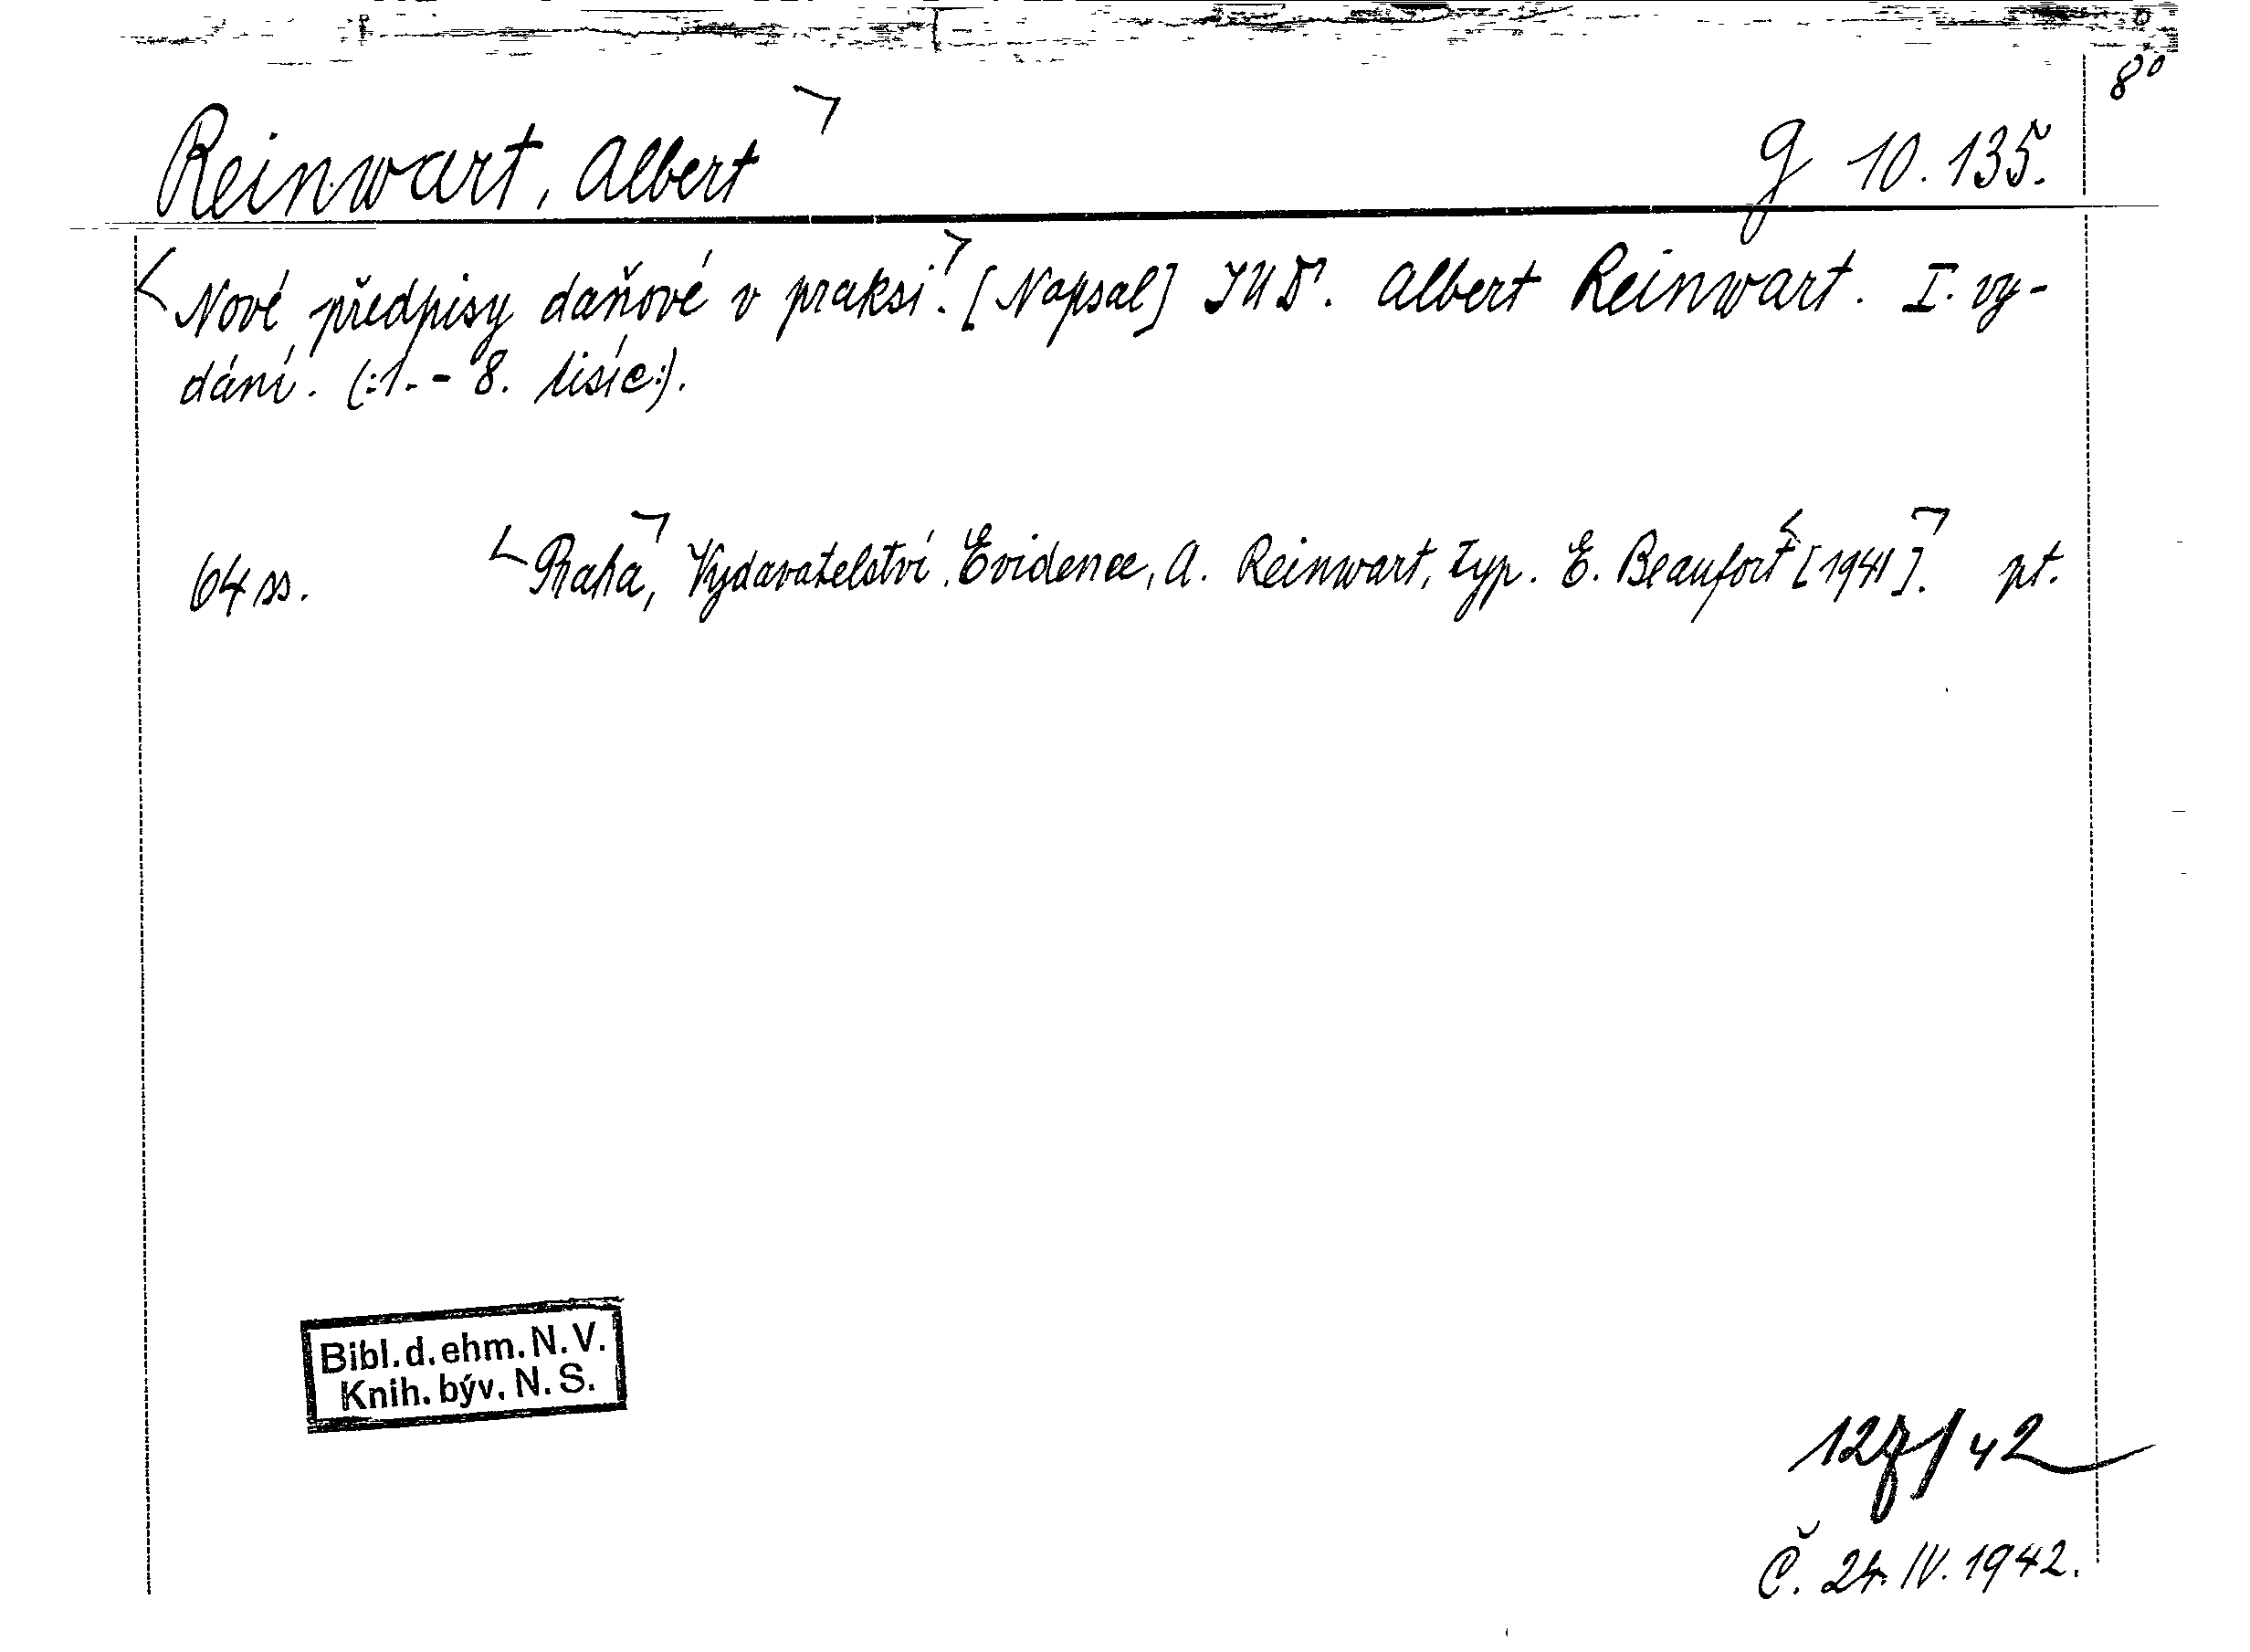 8°
Reinwart, Albert g 10.135.
Nové předpisy daňové v praksi. [Napsal] JUD<sup>r</sup>. Albert Reinwart. I. vy-
dání. (:1.- 8. tisíc:).
64 ss. Praha, Vydavatelství Evidence, A. Reinwart, typ. E. Beaufort [1941]. pt.
Bibl. d. ehm. N. V.
Knih. býv. N. S.
Č. 24. IV. 1942.